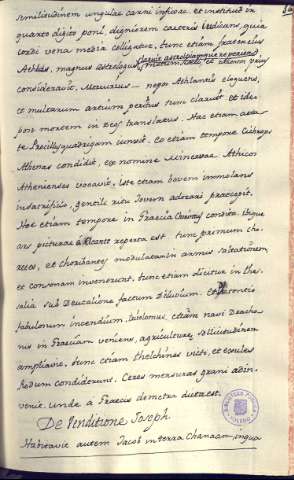 semilicidinem ungulae carni infixae et instituit in
quarto digito poni, digniorem caeteris iudicans, quia
cordi vena media colligatur, tunc etiam frater eius
Athlas, magnus astrologus claruit
consideravit. Mercurius nepos Athlantis eloquens,
et multarum artium peritus tunc claruit et ideo
post mortem in Deos translatus. Hac etiam aeta
te Procillus quadrigam iunxit. Eo etiam tempore Cichrops
Athenas condidit, ex nomine Minervae Athicos
Athenienses vocavit, iste etiam bovem immolans
in sacrificio, gentili ritu Iovem adorari praecepit.
Hoc etiam tempore in Graecia condita, itque
ars picturae a reperta est tunc primum cho
reas, et choribantes modulatam in armis saltationem
et consonam invenerunt, tunc etiam dicitur in thes
salia sub Deucalione factum diluvium. Et Phaetontis
fabulosum incendium, tunc etiam navi Dicachi
nis in Graeciam veniens, agriculturae sollicitudinem
ampliavit. tunc etiam thelchines victi, et exules
Rodum condiderunt. Ceres mensuras grani adin
venit. unde a Graecis demetra dicta est.
De Venditione Joseph
Habitavit autem Jacob in terra Chanaam, in qua